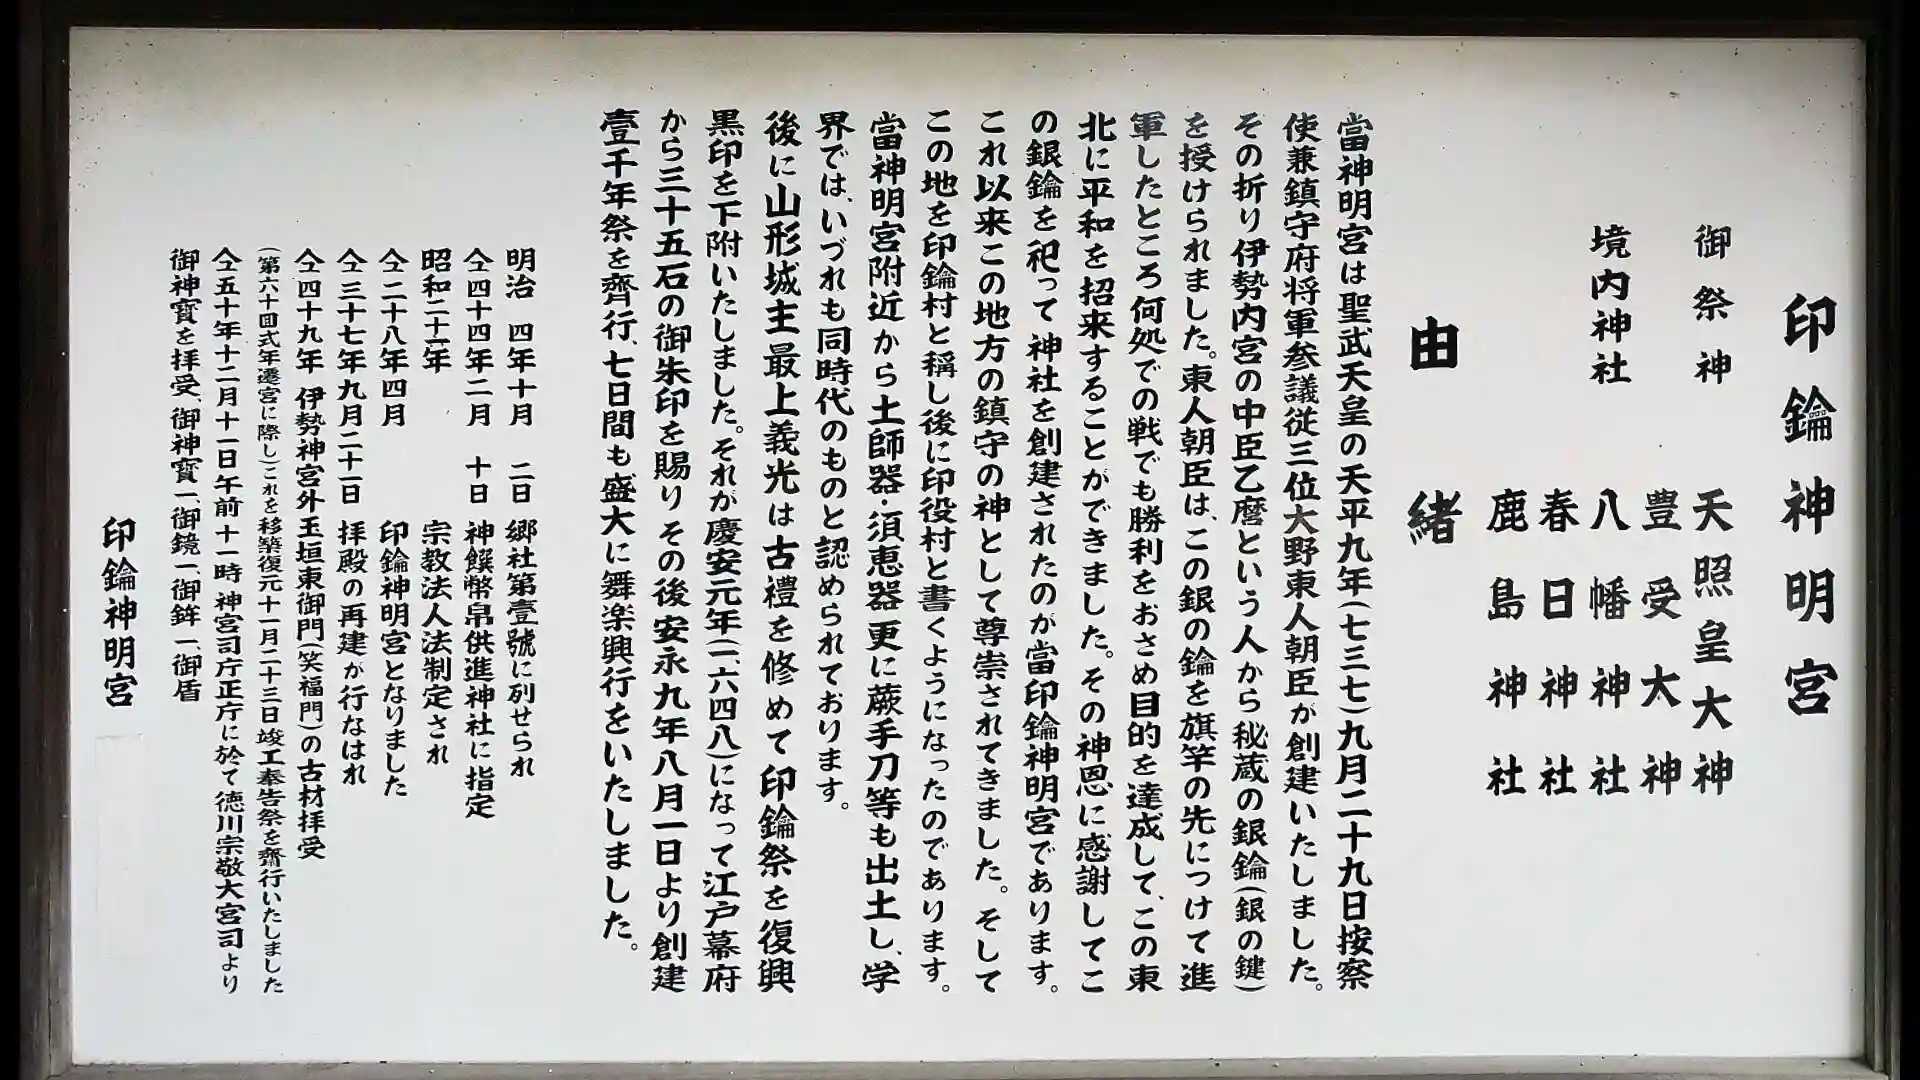 印鑰神明宮
御祭神 天照皇大神
豊受大神
境内神社 八幡神社
春日神社
鹿島神社
由緒
當神明宮は聖武天皇の天平九年(七三七)九月二十九日按察
使兼鎮守府将軍参議従三位大野東人朝臣が創建いたしました。
その折り伊勢内宮の中臣乙麿という人から秘蔵の銀鑰(銀の鍵)
を授けられました。東人朝臣は、この銀の鑰を旗竿の先につけて進
軍したところ何処での戦でも勝利をおさめ目的を達成して、この東
北に平和を招来することができました。その神恩に感謝してこ
の銀鑰を祀って神社を創建されたのが當印鑰神明宮であります。
これ以来この地方の鎮守の神として尊崇されてきました。そして
この地を印鑰村と稱し後に印役村と書くようになったのであります。
當神明宮附近から土師器・須恵器更に蕨手刀等も出土し、学
界では、いづれも同時代のものと認められております。
後に山形城主最上義光は古禮を修めて印鑰祭を復興
黒印を下附いたしました。それが慶安元年(一、六四八)になって江戸幕府
から三十五石の御朱印を賜りその後安永九年八月一日より創建
壹千年祭を齊行、七日間も盛大に舞楽興行をいたしました。
明治 四年十月 二日 郷社第壹號に列せられ
仝四十四年二月 十日 神饌幣帛供進神社に指定
昭和二十一年 宗教法人法制定され
仝二十八年四月 印鑰神明宮となりました
仝三十七年九月二十一日 拝殿の再建が行なはれ
仝四十九年 伊勢神宮外玉垣東御門(笑福門)の古材拝受
(第六十回式年遷宮に際し)これを移築復元十一月二十三日竣工奉告祭を齊行いたしました
仝五十年十二月十一日午前十一時神宮司庁正庁に於て徳川宗敬大宮司より
御神寳を拝受、御神寳一、御鏡一、御鉾一、御盾
印鑰神明宮